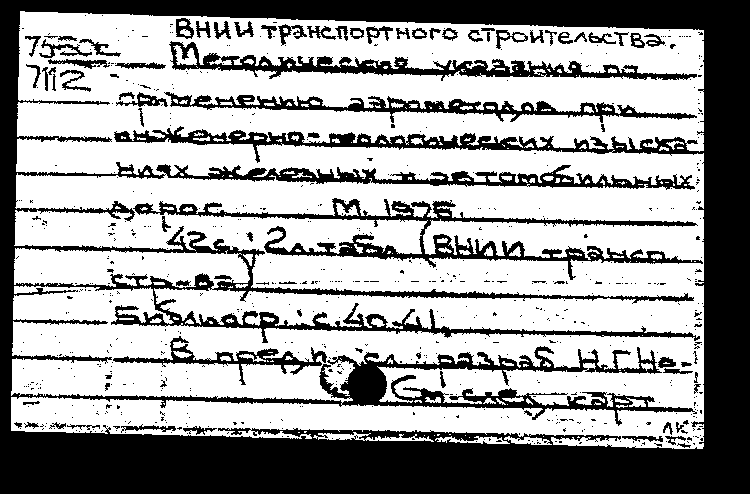 ВНИИ транспортного строительства.
Методические указания по
7112
применению аэрометодов при
инженерно-геологических изыска-
ниях железных и автомобильных
дорог. М. 1975.
42с.; 2л.табл (ВНИИ трансп.
стр-ва)
Библиогр.: с.40-41.
В предисл.: разраб. Н.Г.Не-
См.след. карт
ЛК